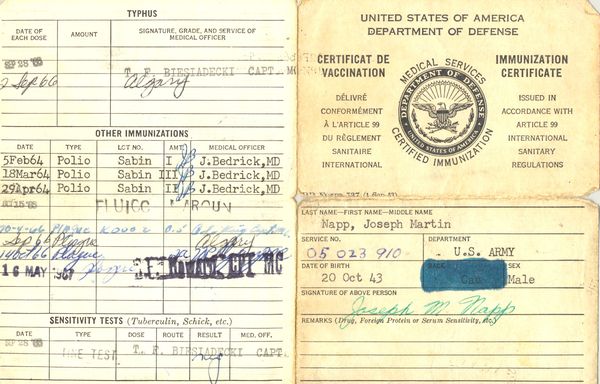 TYPHUS
DATE OF EACH DOSE
AMOUNT
SIGNATURE, GRADE, AND SERVICE OF MEDICAL OFFICER
SEP 28 '65
T. F. BIESIADECKI CAPT.
2 Sep 66
OTHER IMMUNIZATIONS
DATE TYPE LCT NO. AMT. MEDICAL OFFICER
5Feb64 Polio Sabin I J.Bedrick,MD
18Mar64 Polio Sabin III J.Bedrick,MD
29Apr64 Polio Sabin II J.Bedrick,MD
FLUICC
Plague
Sep 66 Plague
Plague
16 MAY 1967
SENSITIVITY TESTS (Tuberculin, Schick, etc.)
DATE TYPE DOSE ROUTE RESULT MED. OFF.
SEP 28 '65
TINE TEST T. F. BIESIADECKI CAPT.
neg
UNITED STATES OF AMERICA
DEPARTMENT OF DEFENSE
CERTIFICAT DE VACCINATION
DÉLIVRÉ
CONFORMÉMENT
À L'ARTICLE 99
DU RÈGLEMENT
SANITAIRE
INTERNATIONAL
MEDICAL SERVICES
DEPARTMENT OF DEFENSE
UNITED STATES OF AMERICA
CERTIFIED IMMUNIZATION
IMMUNIZATION CERTIFICATE
ISSUED IN
ACCORDANCE WITH
ARTICLE 99
INTERNATIONAL
SANITARY
REGULATIONS
LAST NAME—FIRST NAME—MIDDLE NAME
Napp, Joseph Martin
SERVICE NO.
05 023 910
DEPARTMENT
U.S. ARMY
DATE OF BIRTH
20 Oct 43
RACE
Cau
SEX
Male
SIGNATURE OF ABOVE PERSON
Joseph M. Napp
REMARKS (Drug, Foreign Protein or Serum Sensitivity, etc.)